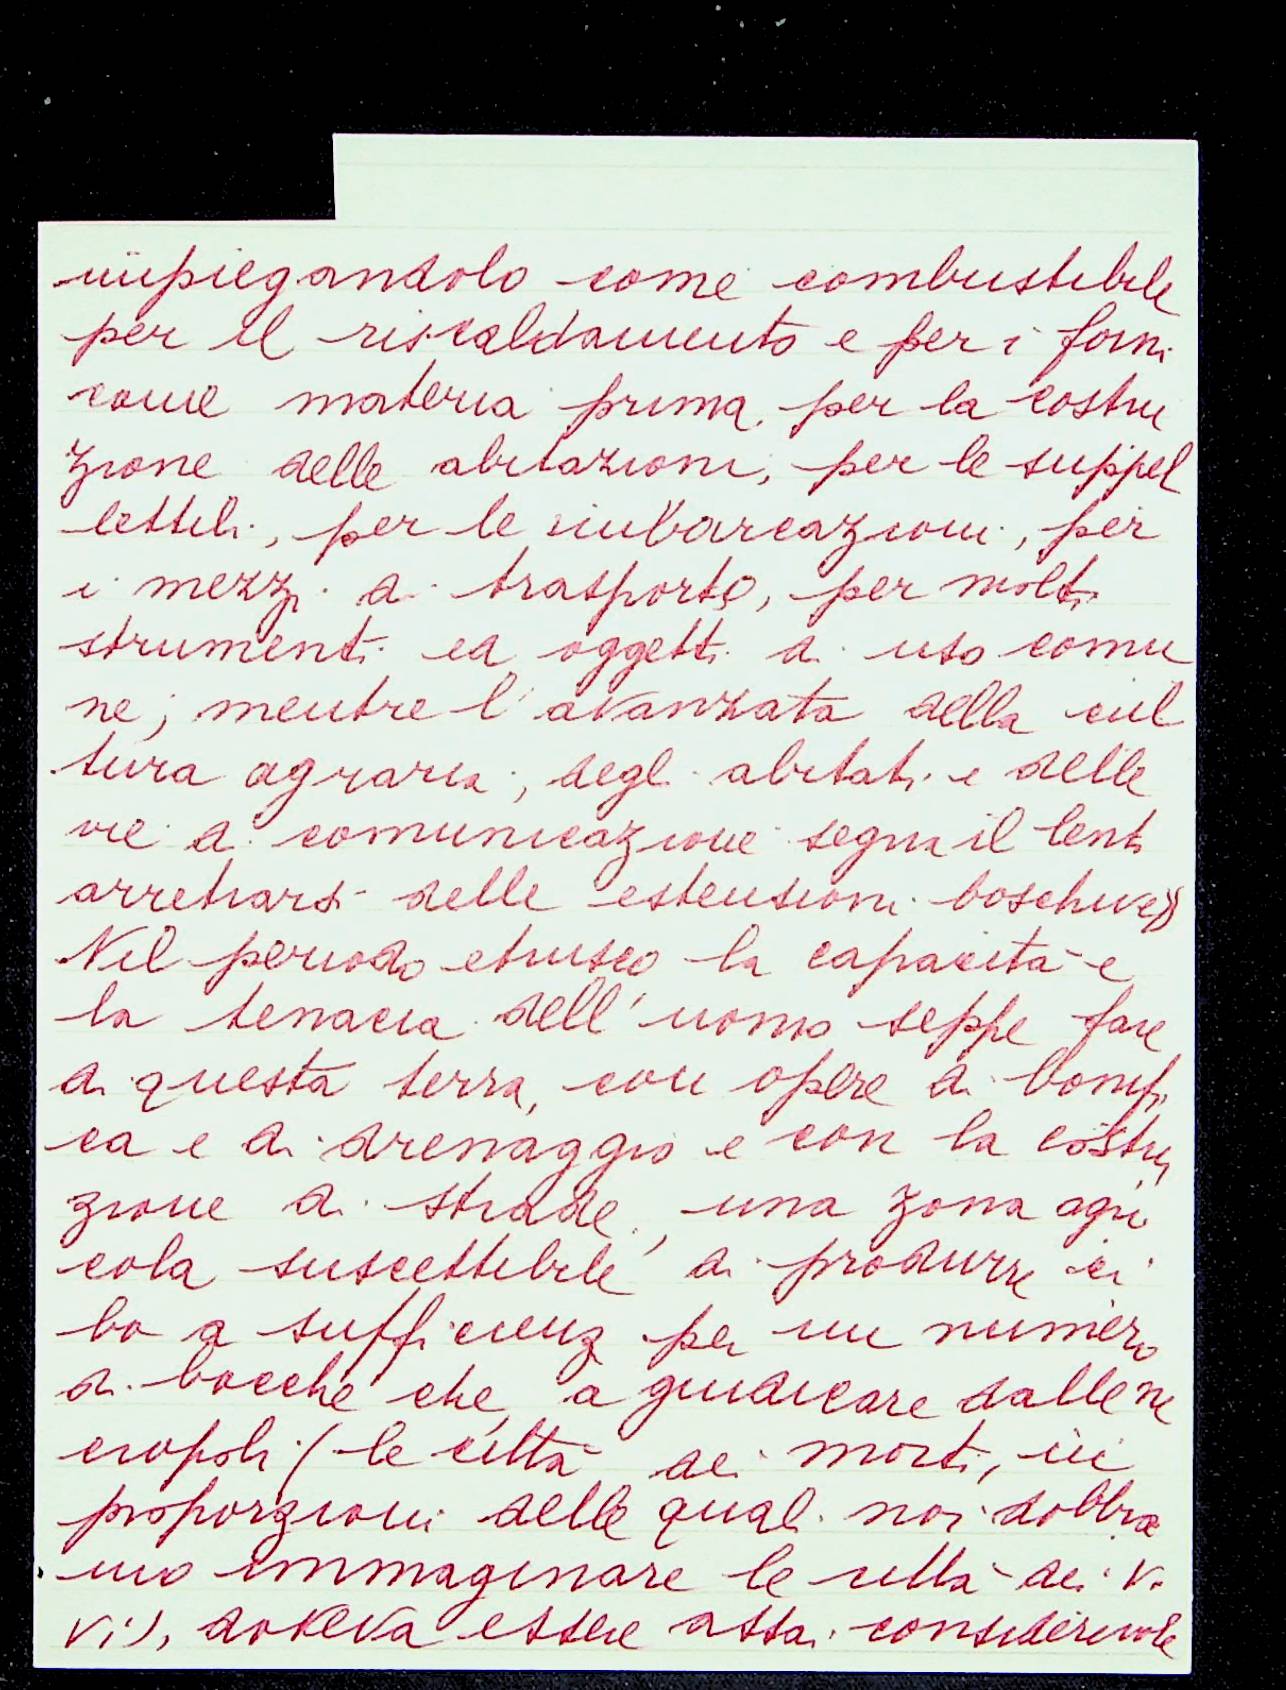 impiegandolo come combustibile
per il riscaldamento e per i forni
come materia prima per la costru
zione delle abitazioni, per le suppel
lettili, per le imbarcazioni, per
i mezzi di trasporto, per molti
strumenti ed oggetti di uso comu
ne; mentre l'avanzata della cul
tura agraria, degli abitati e delle
vie di comunicazione segna il lento
arretrarsi delle estensioni boschive»
Nel periodo etrusco la capacità e
la tenacia dell'uomo seppe fare
di questa terra, con opere di bonifi
ca e di drenaggio e con la costru
zione di strade, una zona agri
cola suscettibile di produrre ci
bo a sufficienza per un numero
di bocche che, a giudicare dalle ne
cropoli (le città dei morti, in
proporzioni delle quali noi dobbia
mo immaginare le città dei vi
vi), doveva essere assai considerevole